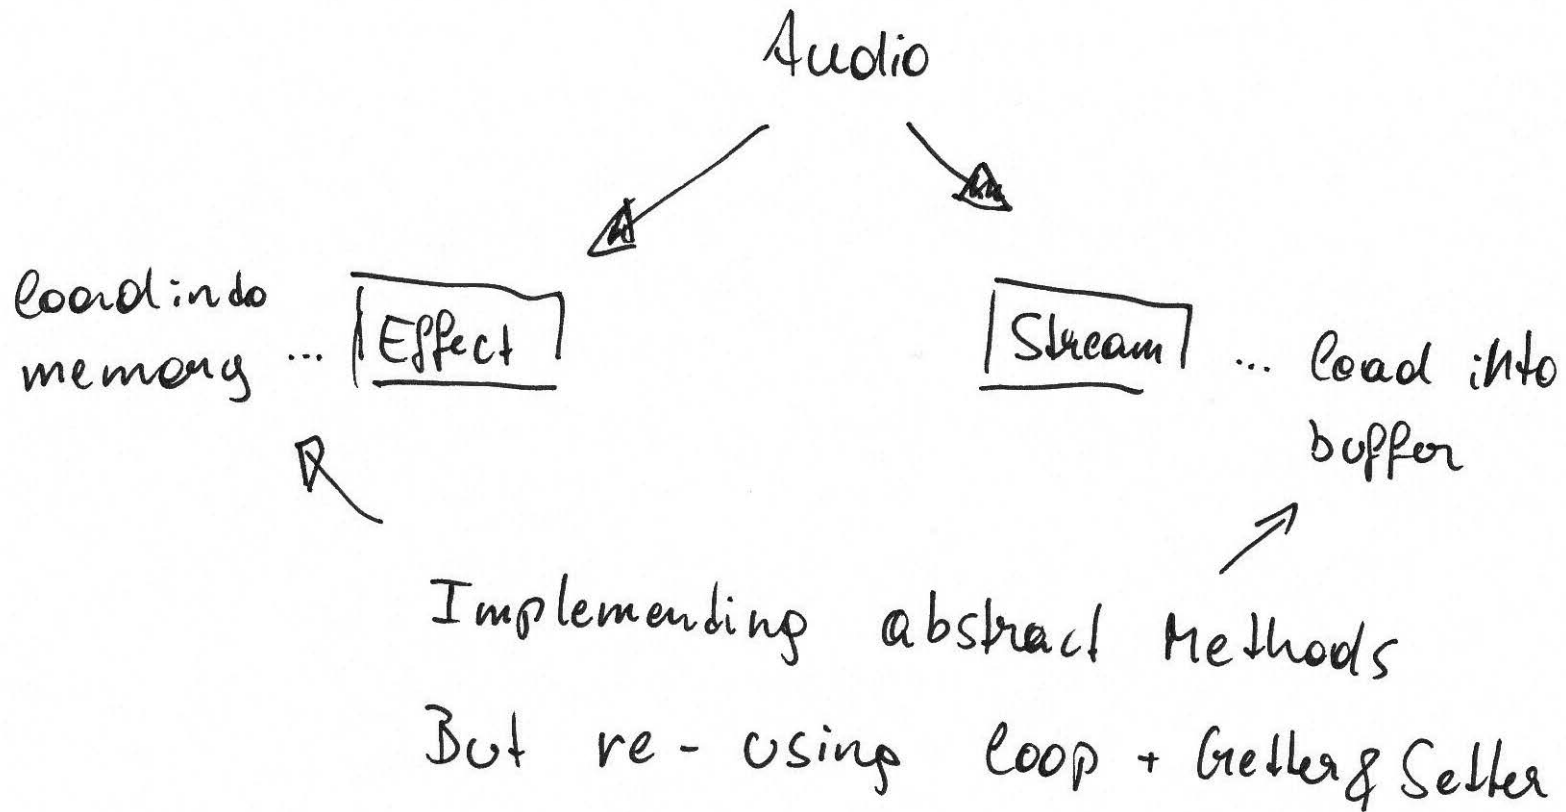 Audio
load into
memory ... Effect
Stream ... load into
buffer
Implementing abstract Methods
But re-using loop + Getter & Setter